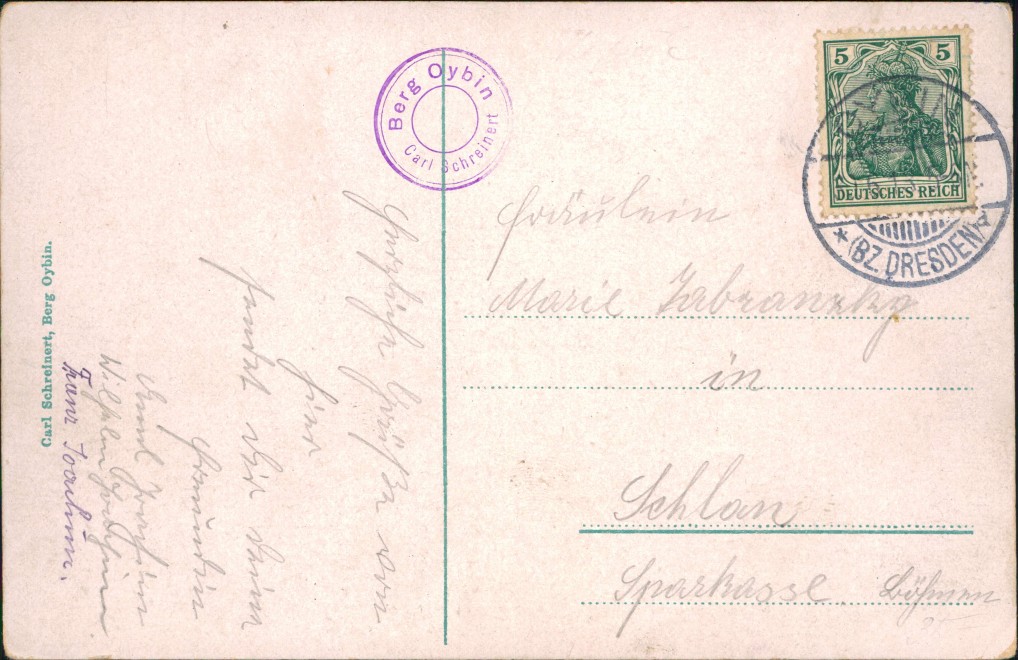 Berg Oybin
Carl Schreinert
5 5
DEUTSCHES REICH
* (BZ. DRESDEN)
Carl Schreinert, Berg Oybin.
Herzliche Grüße von
hier
sendet Dir Deine
Freundin
Wilhelm
Franz Joachim.
Fräulein
Marie Zabranzky
in
Schlan
Sparkasse. Böhmen